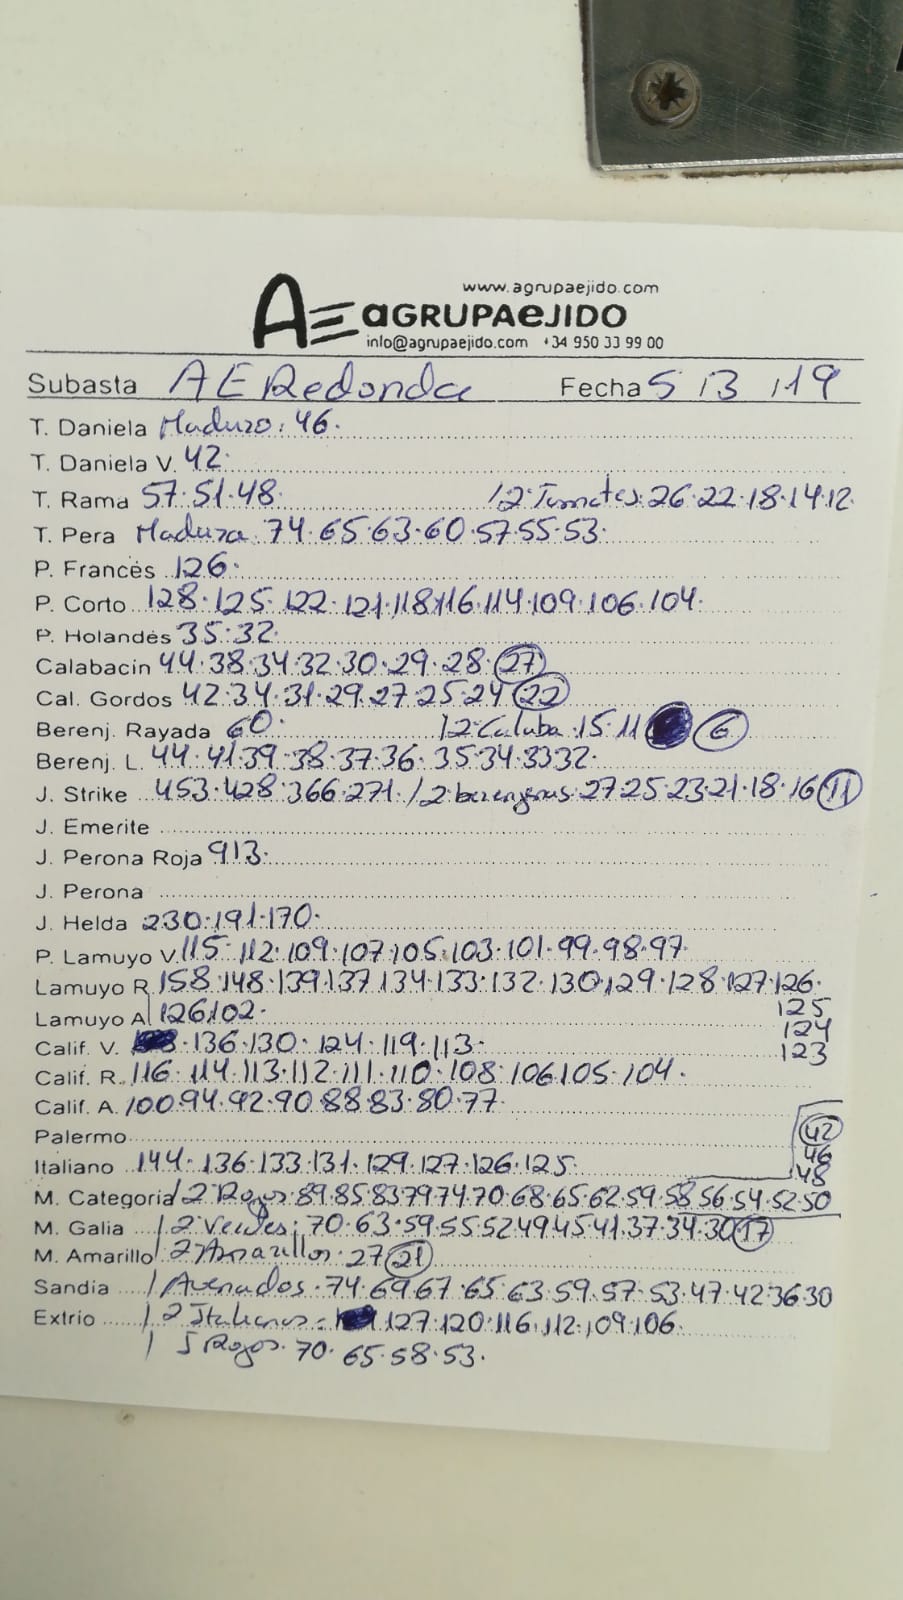 www.agrupaejido.com
AE AGRUPAEJIDO
info@agrupaejido.com +34 950 33 99 00
Subasta AE Redonda Fecha 5 / 3 / 19
T. Daniela Maduro: 46.
T. Daniela V. 42.
T. Rama 57.51.48. / 2ª Tomates. 26.22.18.14.12
T. Pera Madura. 74.65.63.60.57.55.53.
P. Francés 126.
P. Corto 128.125.122.121.118.116.114.109.106.104.
P. Holandés 35.32.
Calabacín 44.38.34.32.30.29.28.27
Cal. Gordos 42.34.31.29.27.25.24 22
Berenj. Rayada 60. / 2ª Calaba. 15.11 6
Berenj. L. 44.41.39.38.37.36.35.34.33 32.
J. Strike 453.428.366.271. / 2 berengenas. 27.25.23.21.18.16 11
J. Emerite
J. Perona Roja 913.
J. Perona
J. Helda 230.191.170.
P. Lamuyo V. 115.112.109.107.105.103.101.99.98.97.
Lamuyo R 158.148.139.137.134.133.132.130.129.128.127.126.
125
Lamuyo A 126.102.
124
Calif. V. 136.130.124.119.113.
123
Calif. R. 116.114.113.112.111.110.108.106.105.104.
Calif. A. 100.94.92.90.88.83.80.77.
Palermo
42
Italiano 144.136.133.131.129.127.126.125.
46
48
M. Categoria / 2 Rojos. 89.85.83.79.74.70.68.65.62.59.58.56.54.52.50
M. Galia / 2 Verdes; 70.63.59.55.52.49.45.41.37.34.30 17
M. Amarillo / 2 Amarillos. 27 21
Sandia / Asurados. 74.69.67.65.63.59.57.53.47.42.36.30
Extrio / 2 Italianos. 127.120.116.112.109.106.
/ 5 Rojos. 70.65.58.53.